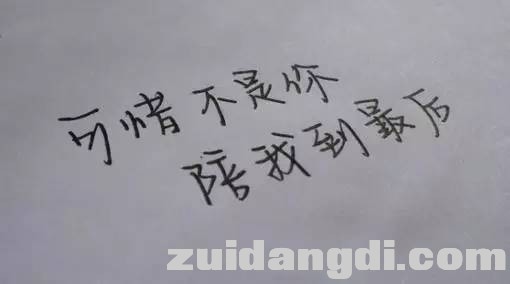 可惜不是你
陪我到最后
zuidangdi.com